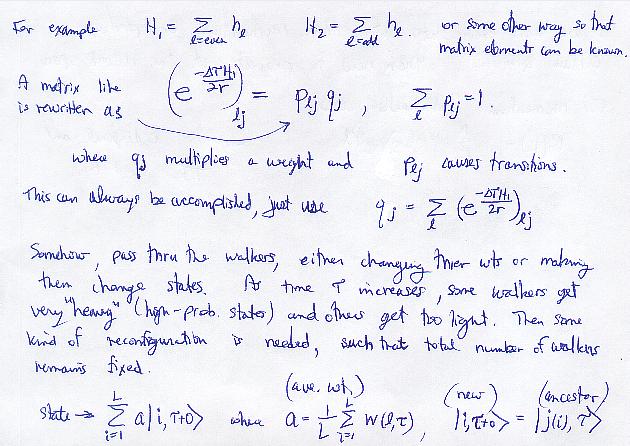 For example H₁ = Σ_{l=even} h_l H₂ = Σ_{l=odd} h_l. or some other way so that
matrix elements can be known.
A matrix like
is rewritten as (e^{-ΔτH₁/2r})_{lj} = p_{lj} q_j , Σ_l p_{lj} = 1.
where q_j multiplies a weight and p_{lj} causes transitions.
This can always be accomplished, just use q_j = Σ_l (e^{-ΔτH₁/2r})_{lj}
Somehow, pass thru the walkers, either changing thier wts or making
them change states. As time τ increases, some walkers get
very "heavy" (high-prob. states) and others get too light. Then some
kind of reconfiguration is needed, such that total number of walkers
remains fixed.
(ave. wt.) (new) (ancestor)
State → Σ_{i=1}^{L} a|i, τ+0⟩ where a = 1/L Σ_{j=1}^{L} w(l,τ) |i,τ+0⟩ = |j(i), τ⟩